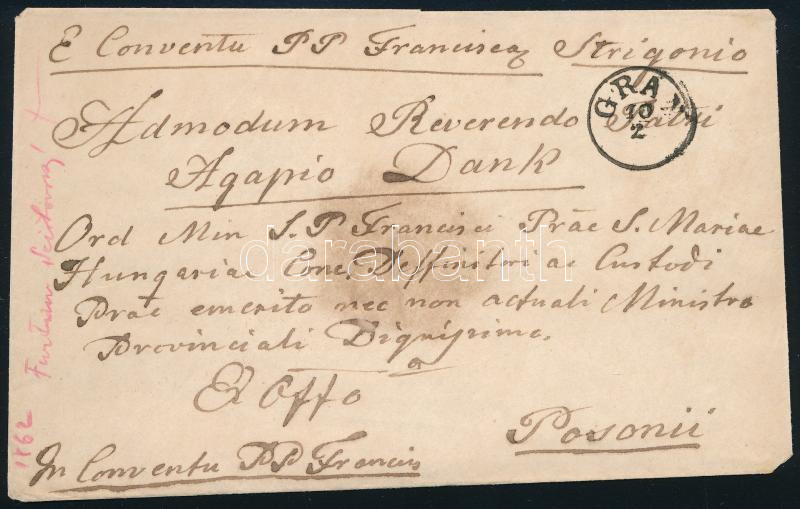 E Conventu PP Franciscaŋ Strigonio
GRAN
10
2
Admodum Reverendo Patri
Agapio Dank
Ord Min S. P Francisci Präe S. Mariae
Hungariae Conc. Deffinitri ac Custodi
Präe emerito nec non actuali Ministro
Provinciali Dignissimo.
Ex Offo
Posonii
In Conventu PP Francis
1862
darabanth